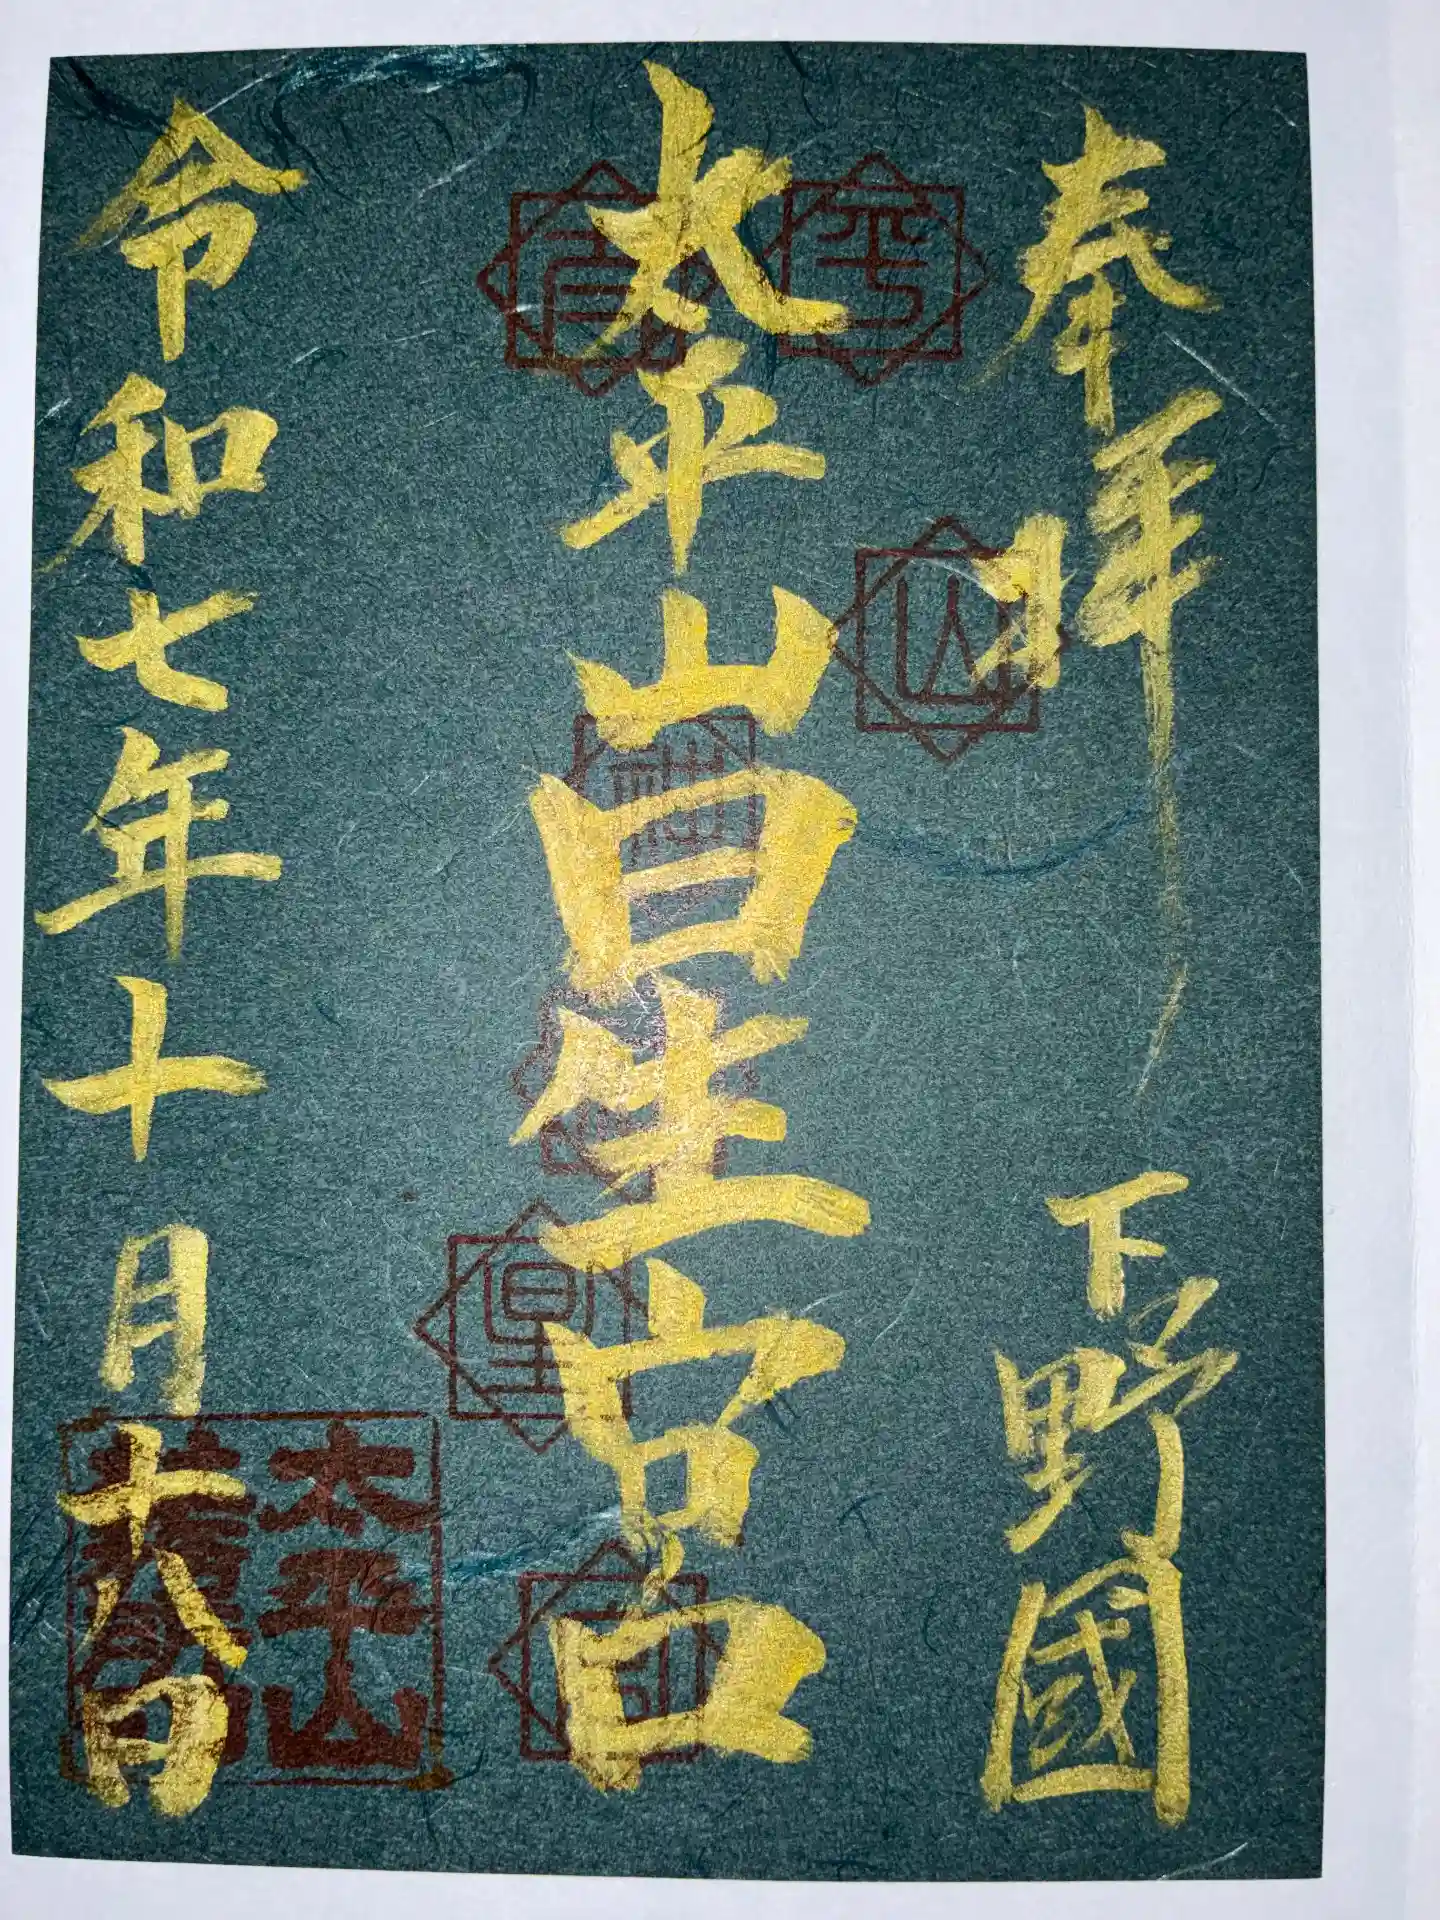 奉拝 下野國
太平山日生宮
令和七年十月十八日
平
山
星
宮
太平山